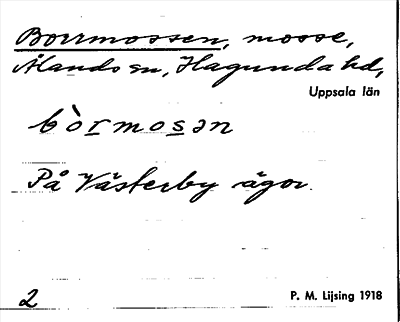 Borrmossen, mosse,
Ålands sn, Hagunda hd,
Uppsala län
bòrmosən
På Västerby ägor.
2
P. M. Lijsing 1918